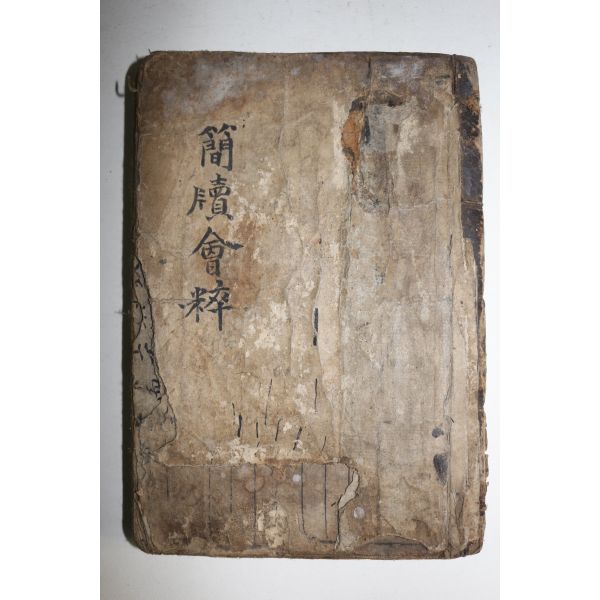 簡牘會粹